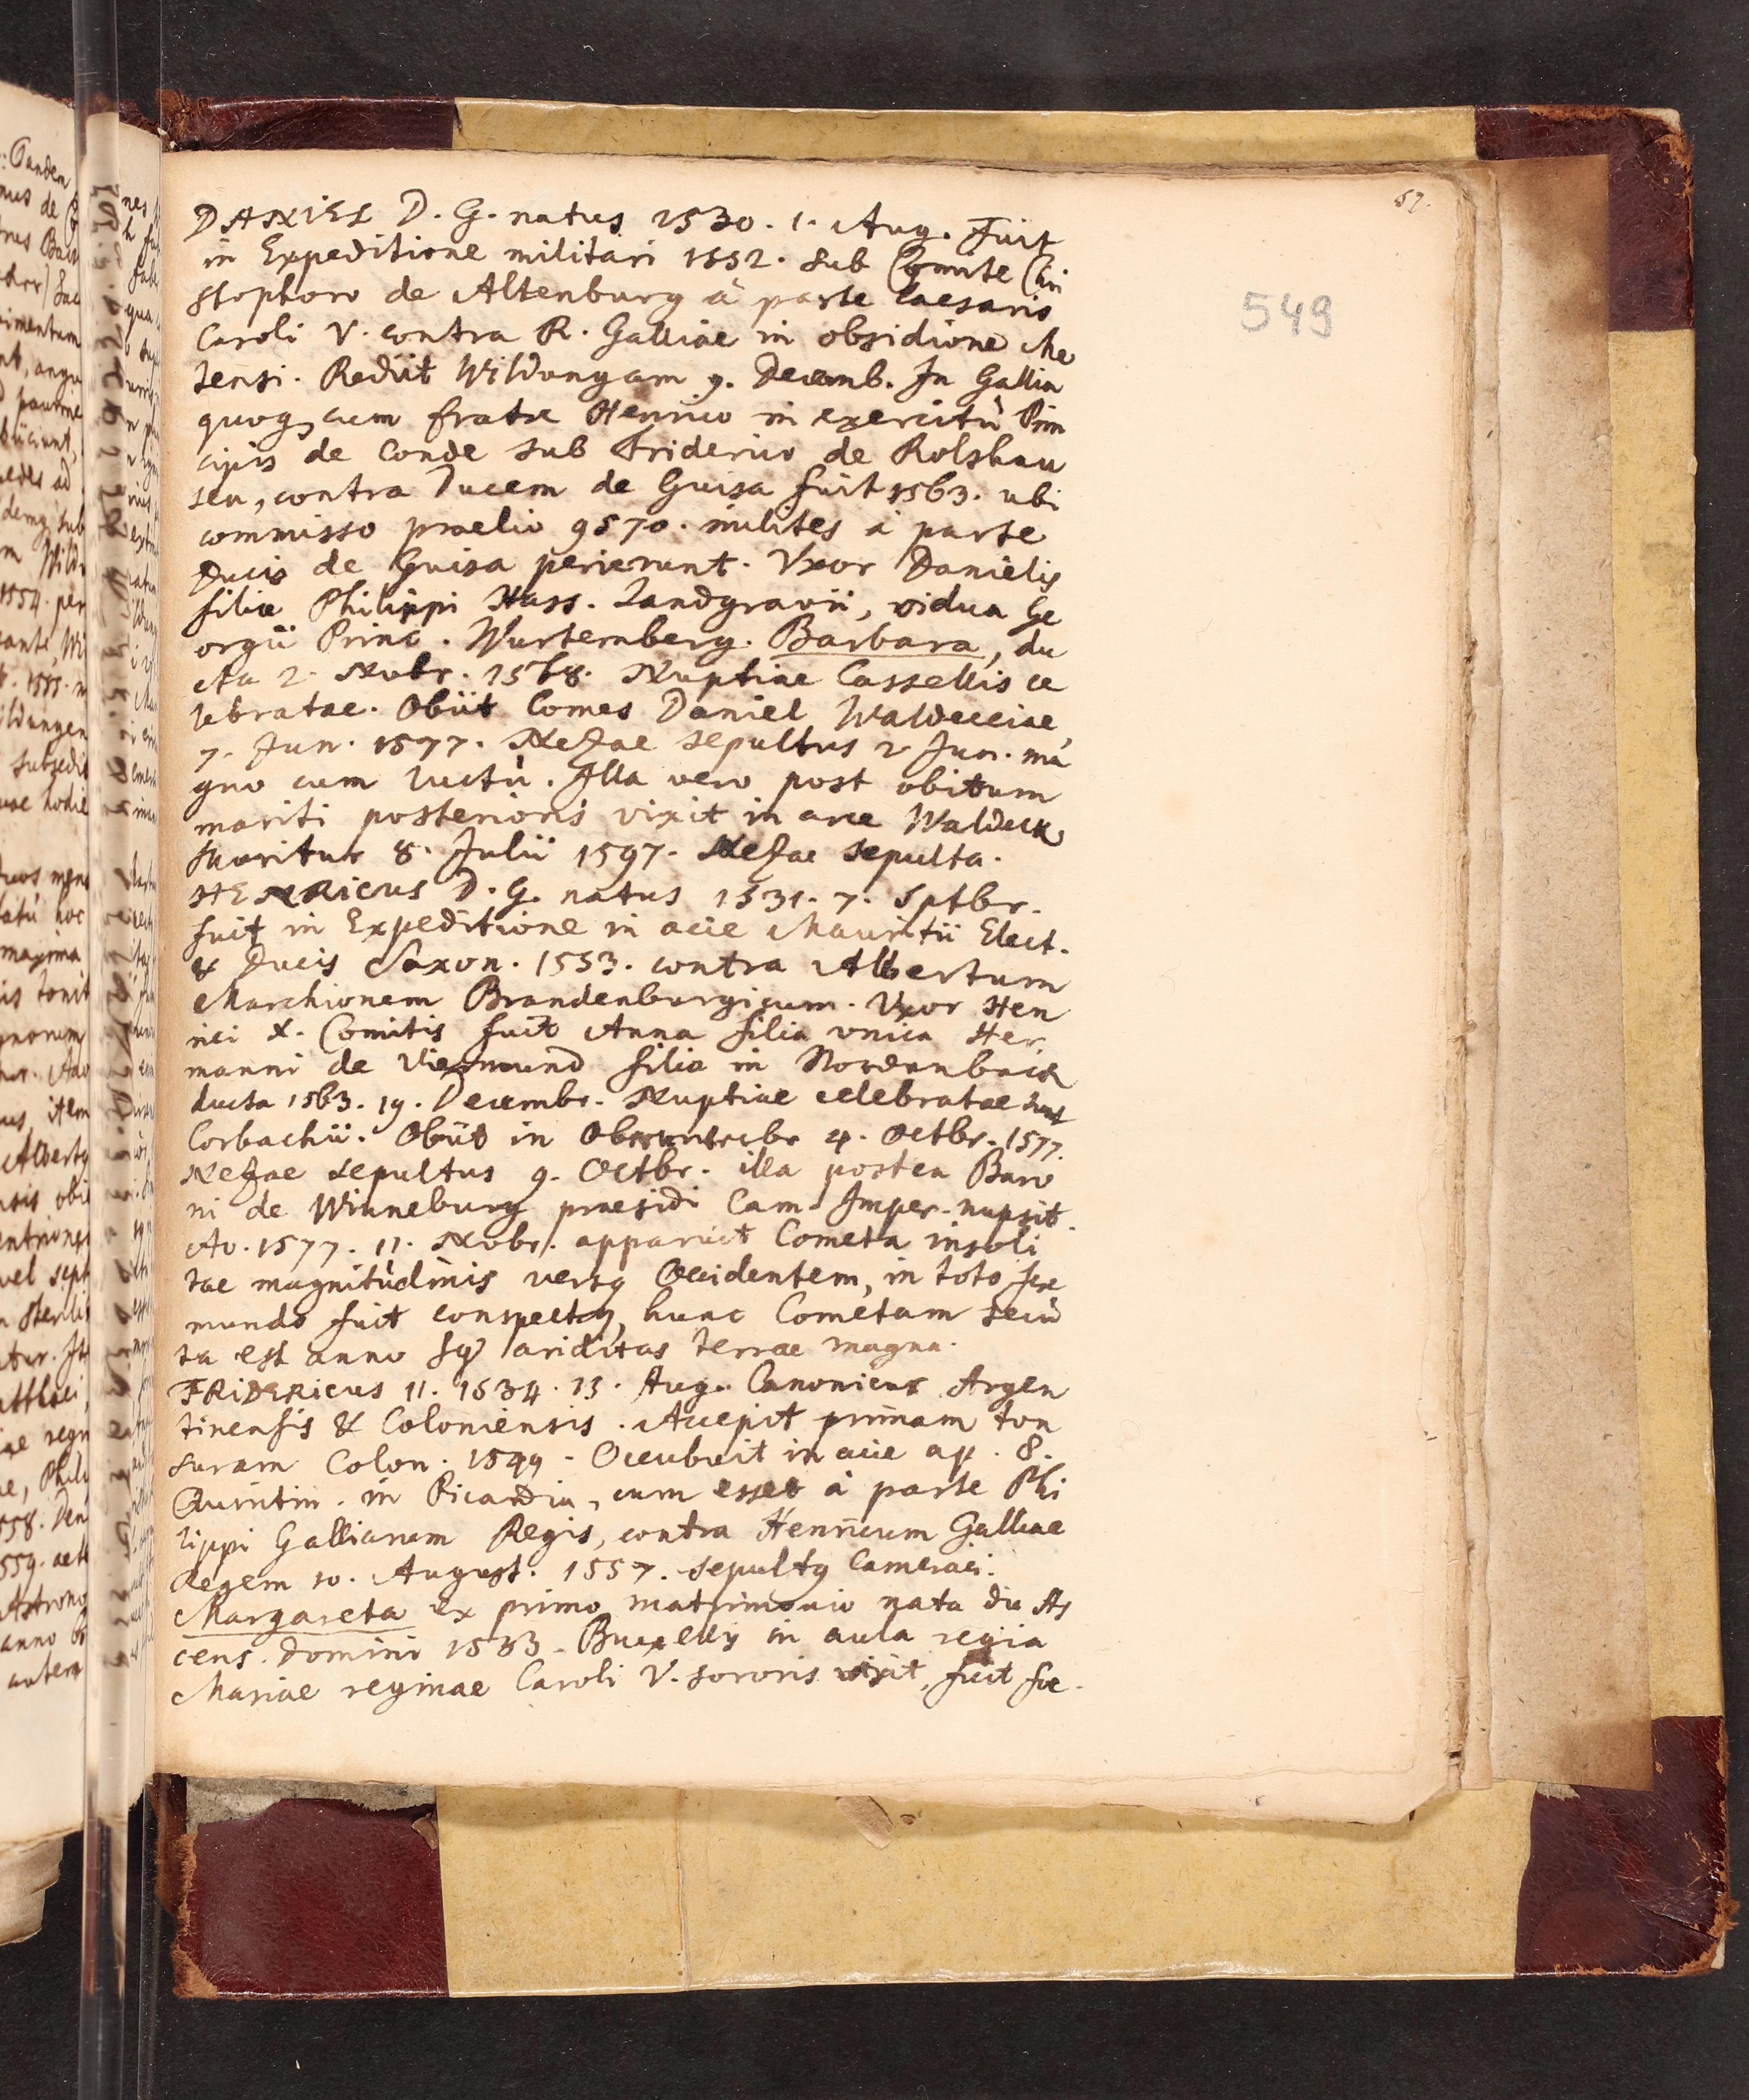 57.
549
DANIEL D. G. natus 1530. 1. Aug. Fuit
in Expeditione militari 1552. sub Comite Chri
stophoro de Altenburg à parte Caesaris
Caroli V. contra R. Galliae in obsidione Me
tensi. Rediit Wildungam 9. Decemb. In Gallia
quoq, cum fratre Henrico in exercitù Prin
cipis de Conde sub Friderico de Rolshau
sen, contra Ducem de Guisa fuit 1563. ubi
commisso praelio 9570. milites à parte
Ducis de Guisa perierunt. Vxor Danielis
filia Philippi Hass. Landgravii, vidua Ge
orgii Princ. Wurtemberg. Barbara, du
cta 2. Novbr. 1568. Nuptiae Cassellis ce
lebratae. Obiit Comes Daniel Waldeciae,
7. Jun. 1577. Nezae sepultus 2 Jun. ma
gno cum luctù. Illa vero post obitum
mariti posterioris vixit in arce Waldeck,
Moritur 8. Julii 1597. Nezae sepulta.
HENRICUS D. G. natus 1531. 7. Sptbr.
fuit in Expeditione in acie Mauritii Elect.
& Ducis Saxon. 1553. contra Albertum
Marchionem Brandenburgicum. Vxor Hen
rici X. Comitis fuit Anna filia vnica Her,
manni de Viermund filia in Nordenbeck
ducta 1563. 19. Decembr. Nuptiae celebratae sunt
Corbachii. Obiit in 4. Octbr. 1577.
Nezae sepultus 9. Octbr. illa postea Baro
ni de Winneburg praesidi Cam. Imper. nupsit.
Ao. 1577. 11. Novbr. apparuit Cometa insoli
tae magnitùdinis versq Occidentem, in toto fere
mundo fuit conspectq, hunc Cometam secù
ta est anno sq ariditas terrae magna.
FRIDERICUS 11. 1534. 13. Aug. Canonicus Argen
tinensis & Coloniensis. Accepit primam ton
suram Colon. 1549. Occubuit in acie ap. S.
Quintin. in Picardia, cum esset à parte Phi
lippi Galliarum Regis, contra Henricum Galliae
Regem 10. August. 1557. sepultq Cameraci.
Margareta ex primo matrimonio nata die As
cens. Domini 1533. Buxellis in aula regia
Mariae reginae Caroli V. sororis vixit, fuit foe-